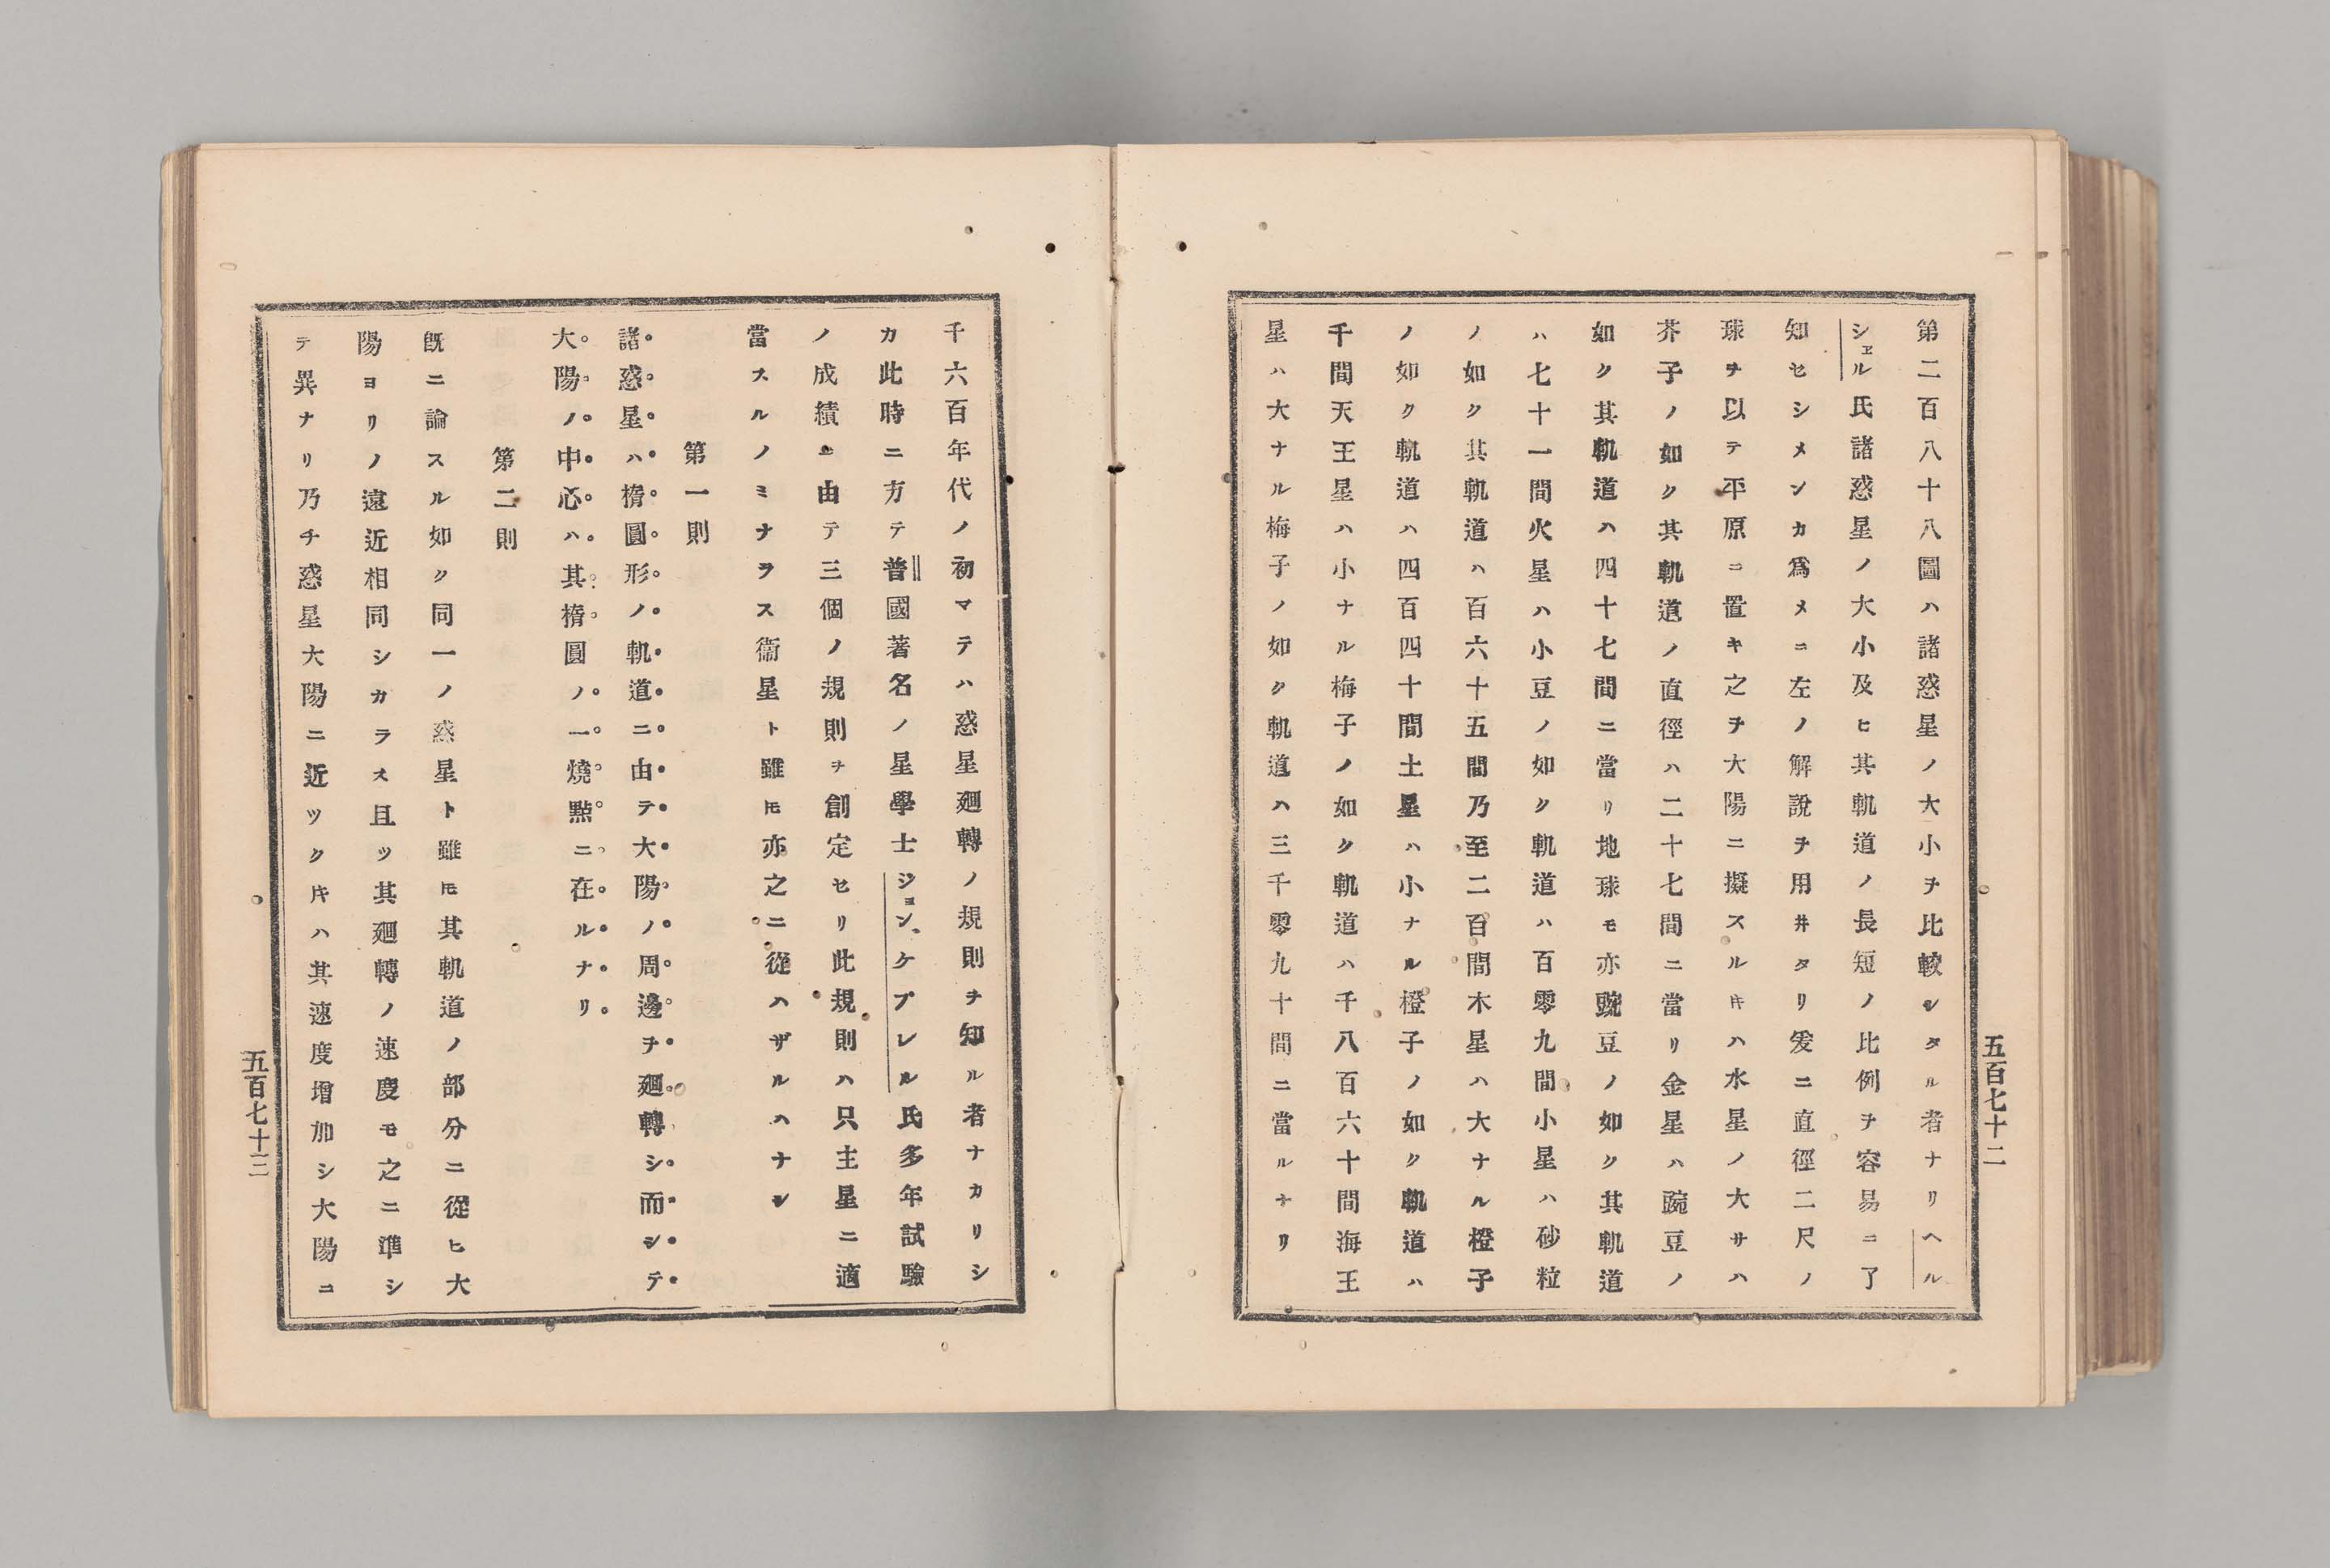 第二百八十八圖ハ諸惑星ノ大小ヲ比較シタル者ナリヘル
シェル氏諸惑星ノ大小及ヒ其軌道ノ長短ノ比例ヲ容易ニ了
知セシメンカ爲メニ左ノ解說ヲ用井タリ爰ニ直徑二尺ノ
球ヲ以テ平原ニ置キ之ヲ大陽ニ擬スルキハ水星ノ大サハ
芥子ノ如ク其軌道ノ直徑ハ二十七間ニ當リ金星ハ豌豆ノ
如ク其軌道ハ四十七間ニ當リ地球モ亦豌豆ノ如ク其軌道
ハ七十一間火星ハ小豆ノ如ク軌道ハ百零九間小星ハ砂粒
ノ如ク其軌道ハ百六十五間乃至二百間木星ハ大ナル橙子
ノ如ク軌道ハ四百四十間土星ハ小ナル橙子ノ如ク軌道ハ
千間天王星ハ小ナル梅子ノ如ク軌道ハ千八百六十間海王
星ハ大ナル梅子ノ如ク軌道ハ三千零九十間ニ當ルナリ
五百七十二
千六百年代ノ初マテハ惑星廻轉ノ規則ヲ知ル者ナカリシ
カ此時ニ方テ普國著名ノ星學士ジョン、ケプレル氏多年試驗
ノ成績ニ由テ三個ノ規則ヲ創定セリ此規則ハ只主星ニ適
當スルノミナラス衞星ト雖𪜈亦之ニ從ハザルハナシ
第一則
諸惑星ハ橢圓形ノ軌道ニ由テ大陽ノ周邊ヲ廻轉シ而シテ
大陽ノ中心ハ其橢圓ノ一燒㸃ニ在ルナリ
第二則
旣ニ論スル如ク同一ノ惑星ト雖𪜈其軌道ノ部分ニ從ヒ大
陽ヨリノ遠近相同シカラス且ツ其廻轉ノ速度モ之ニ準シ
テ異ナリ乃チ惑星大陽ニ近ツクキハ其速度增加シ大陽ニ
五百七十三